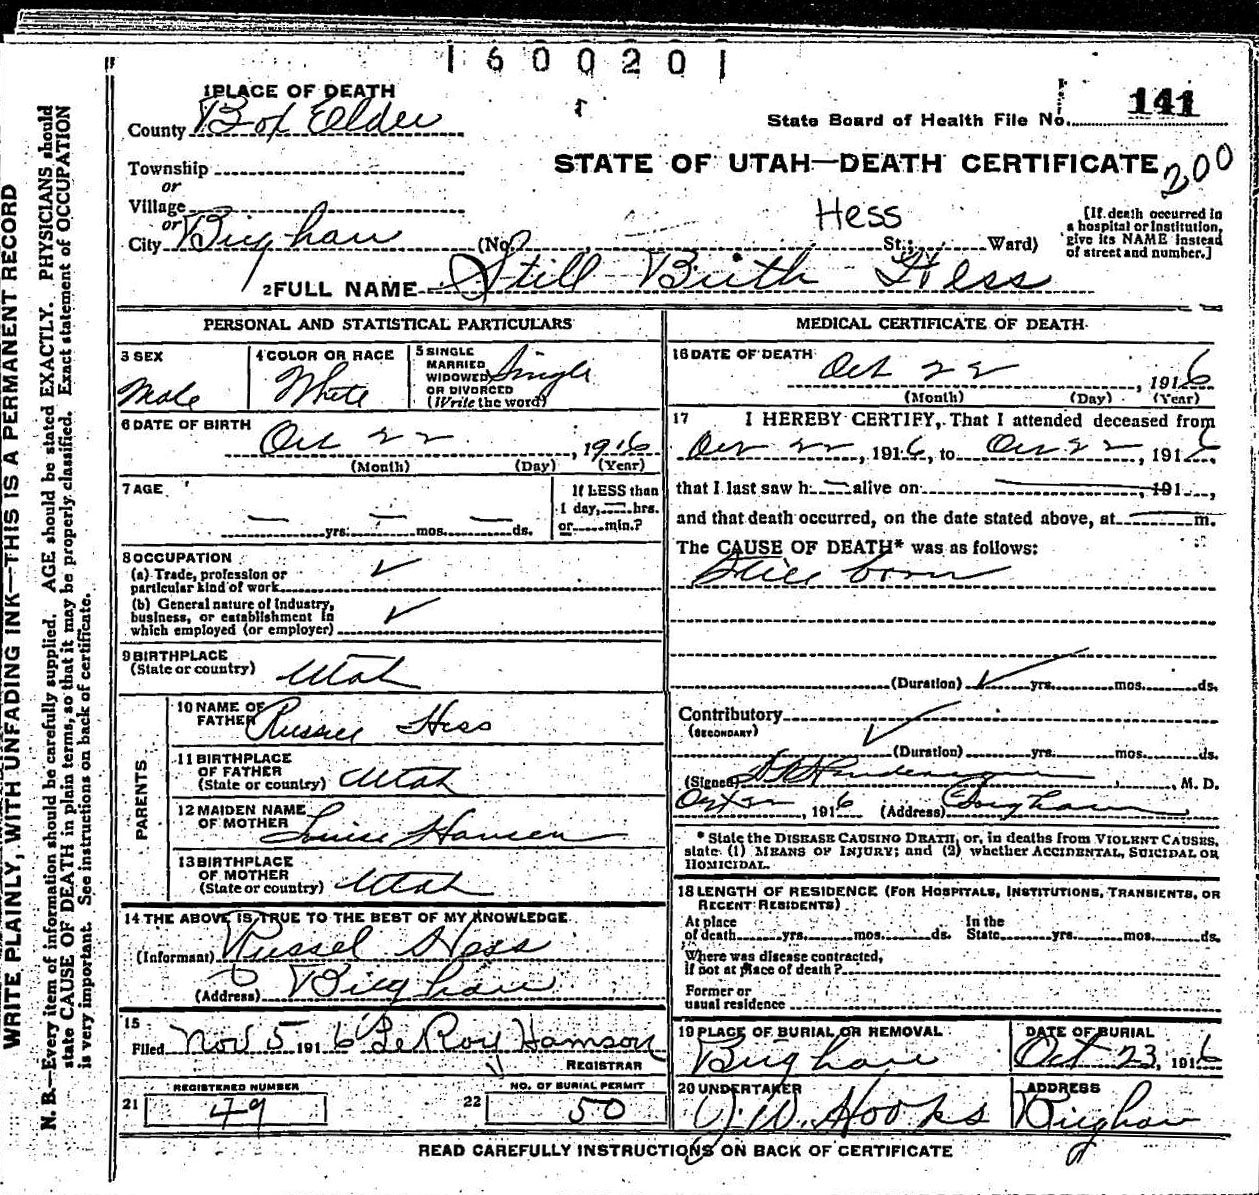 1600201
1 PLACE OF DEATH
County Box Elder
State Board of Health File No. 141
Township
or
Village
or
City Brigham
STATE OF UTAH—DEATH CERTIFICATE
200
Hess
(No. St.; Ward)
[If death occurred in
a hospital or institution,
give its NAME instead
of street and number.]
2 FULL NAME Still Birth Hess
PERSONAL AND STATISTICAL PARTICULARS
3 SEX
Male
4 COLOR OR RACE
White
5 SINGLE
MARRIED
WIDOWED
OR DIVORCED
(Write the word)
Single
6 DATE OF BIRTH
Oct 22, 1916
(Month) (Day) (Year)
7 AGE
yrs. mos. ds.
If LESS than
1 day, hrs.
or min.?
8 OCCUPATION
(a) Trade, profession or
particular kind of work
(b) General nature of Industry,
business, or establishment in
which employed (or employer)
9 BIRTHPLACE
(State or country) Utah
PARENTS
10 NAME OF
FATHER Russel Hess
11 BIRTHPLACE
OF FATHER
(State or country) Utah
12 MAIDEN NAME
OF MOTHER Louise Hansen
13 BIRTHPLACE
OF MOTHER
(State or country) Utah
14 THE ABOVE IS TRUE TO THE BEST OF MY KNOWLEDGE
(Informant) Russel Hess
(Address) Brigham
15
Filed Nov 5 1916 LeRoy Hamson
REGISTRAR
REGISTERED NUMBER
21 49
NO. OF BURIAL PERMIT
22 50
MEDICAL CERTIFICATE OF DEATH
16 DATE OF DEATH
Oct 22, 1916
(Month) (Day) (Year)
17 I HEREBY CERTIFY, That I attended deceased from
Oct 22, 1916, to Oct 22, 1916,
that I last saw h— alive on, 191,
and that death occurred, on the date stated above, at m.
The CAUSE OF DEATH* was as follows:
Still born
(Duration) yrs. mos. ds.
Contributory
(SECONDARY)
(Duration) yrs. mos. ds.
(Signed) M. D.
1916 (Address) Brigham
* State the DISEASE CAUSING DEATH, or, in deaths from VIOLENT CAUSES,
state (1) MEANS OF INJURY; and (2) whether ACCIDENTAL, SUICIDAL OR
HOMICIDAL.
18 LENGTH OF RESIDENCE (FOR HOSPITALS, INSTITUTIONS, TRANSIENTS, OR
RECENT RESIDENTS)
At place In the
of death yrs. mos. ds. State yrs. mos. ds.
Where was disease contracted,
if not at place of death?
Former or
usual residence
19 PLACE OF BURIAL OR REMOVAL
Brigham
DATE OF BURIAL
Oct 23, 1916
20 UNDERTAKER
J. W. Hooks
ADDRESS
Brigham
READ CAREFULLY INSTRUCTIONS ON BACK OF CERTIFICATE
WRITE PLAINLY, WITH UNFADING INK—THIS IS A PERMANENT RECORD
N. B.—Every item of information should be carefully supplied. AGE should be stated EXACTLY. PHYSICIANS should
state CAUSE OF DEATH in plain terms, so that it may be properly classified. Exact statement of OCCUPATION
is very important. See instructions on back of certificate.